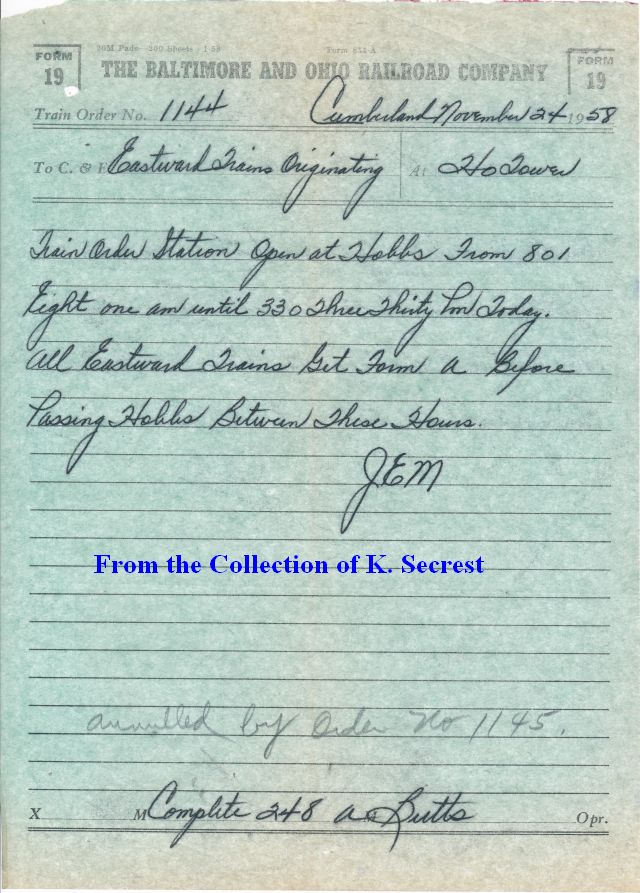 20M Pads - 200 Sheets - 1-58 Form 831-A
FORM 19 THE BALTIMORE AND OHIO RAILROAD COMPANY FORM 19
Train Order No. 1144 Cumberland November 24 1958
To C. & E. Eastward Trains Originating At Ho Tower
Train Order Station Open at Hobbs From 801
Eight one am until 330 Three Thirty Pm Today.
All Eastward Trains Get Form A Before
Passing Hobbs Between These Hours.
JEM
From the Collection of K. Secrest
annulled by Order No 1145.
X M Complete 248 a M Butts Opr.